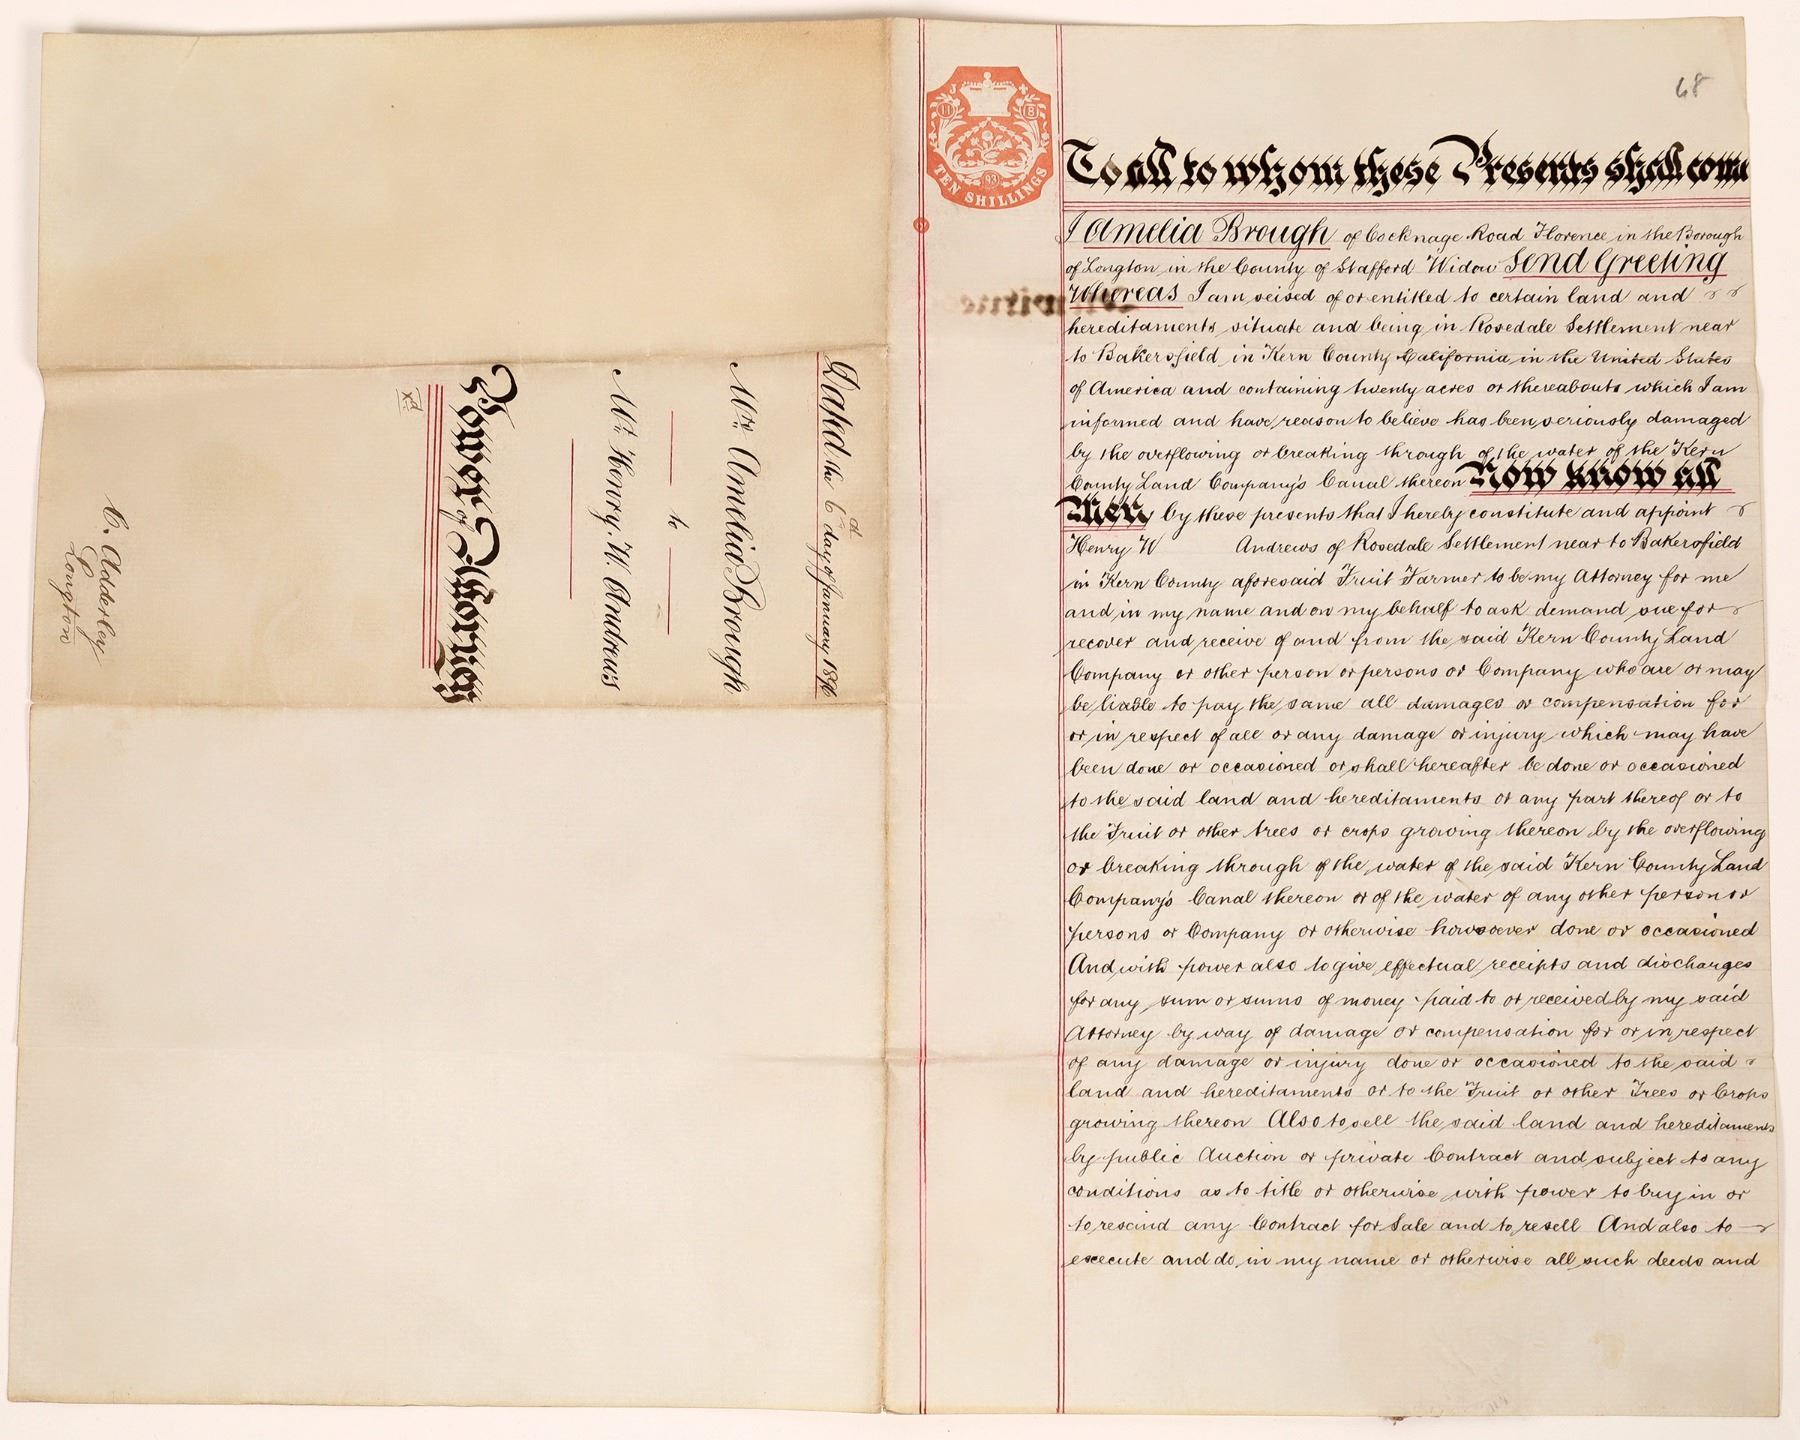 Dated the 6th day of January 1896
Mrs. Amelia Brough
to
Mr. Henry. W. Andrews
Power of Attorney
C. Adderley
Longton
68
J
11
8
93
TEN SHILLINGS
To all to whom these Presents shall come
I Amelia Brough of Cocknage Road Florence in the Borough
of Longton in the County of Stafford Widow Send Greeting
Whereas I am seised of or entitled to certain land and
hereditaments situate and being in Rosedale Settlement near
to Bakersfield in Kern County California in the United States
of America and containing twenty acres or thereabouts which I am
informed and have reason to believe has been seriously damaged
by the overflowing or breaking through of the water of the Kern
County Land Company's Canal thereon Now know all
Men by these presents that I hereby constitute and appoint
Henry W Andrews of Rosedale Settlement near to Bakersfield
in Kern County aforesaid Fruit Farmer to be my Attorney for me
and in my name and on my behalf to ask demand sue for
recover and receive of and from the said Kern County Land
Company or other person or persons or Company who are or may
be liable to pay the same all damages or compensation for
or in respect of all or any damage or injury which may have
been done or occasioned or shall hereafter be done or occasioned
to the said land and hereditaments or any part thereof or to
the Fruit or other trees or crops growing thereon by the overflowing
or breaking through of the water of the said Kern County Land
Company's Canal thereon or of the water of any other person or
persons or Company or otherwise howsoever done or occasioned
And with power also to give effectual receipts and discharges
for any sum or sums of money paid to or received by my said
Attorney by way of damage or compensation for or in respect
of any damage or injury done or occasioned to the said
land and hereditaments or to the Fruit or other Trees or Crops
growing thereon Also to sell the said land and hereditaments
by public Auction or private Contract and subject to any
conditions as to title or otherwise with power to buy in or
to rescind any Contract for Sale and to resell And also to
execute and do in my name or otherwise all such deeds and